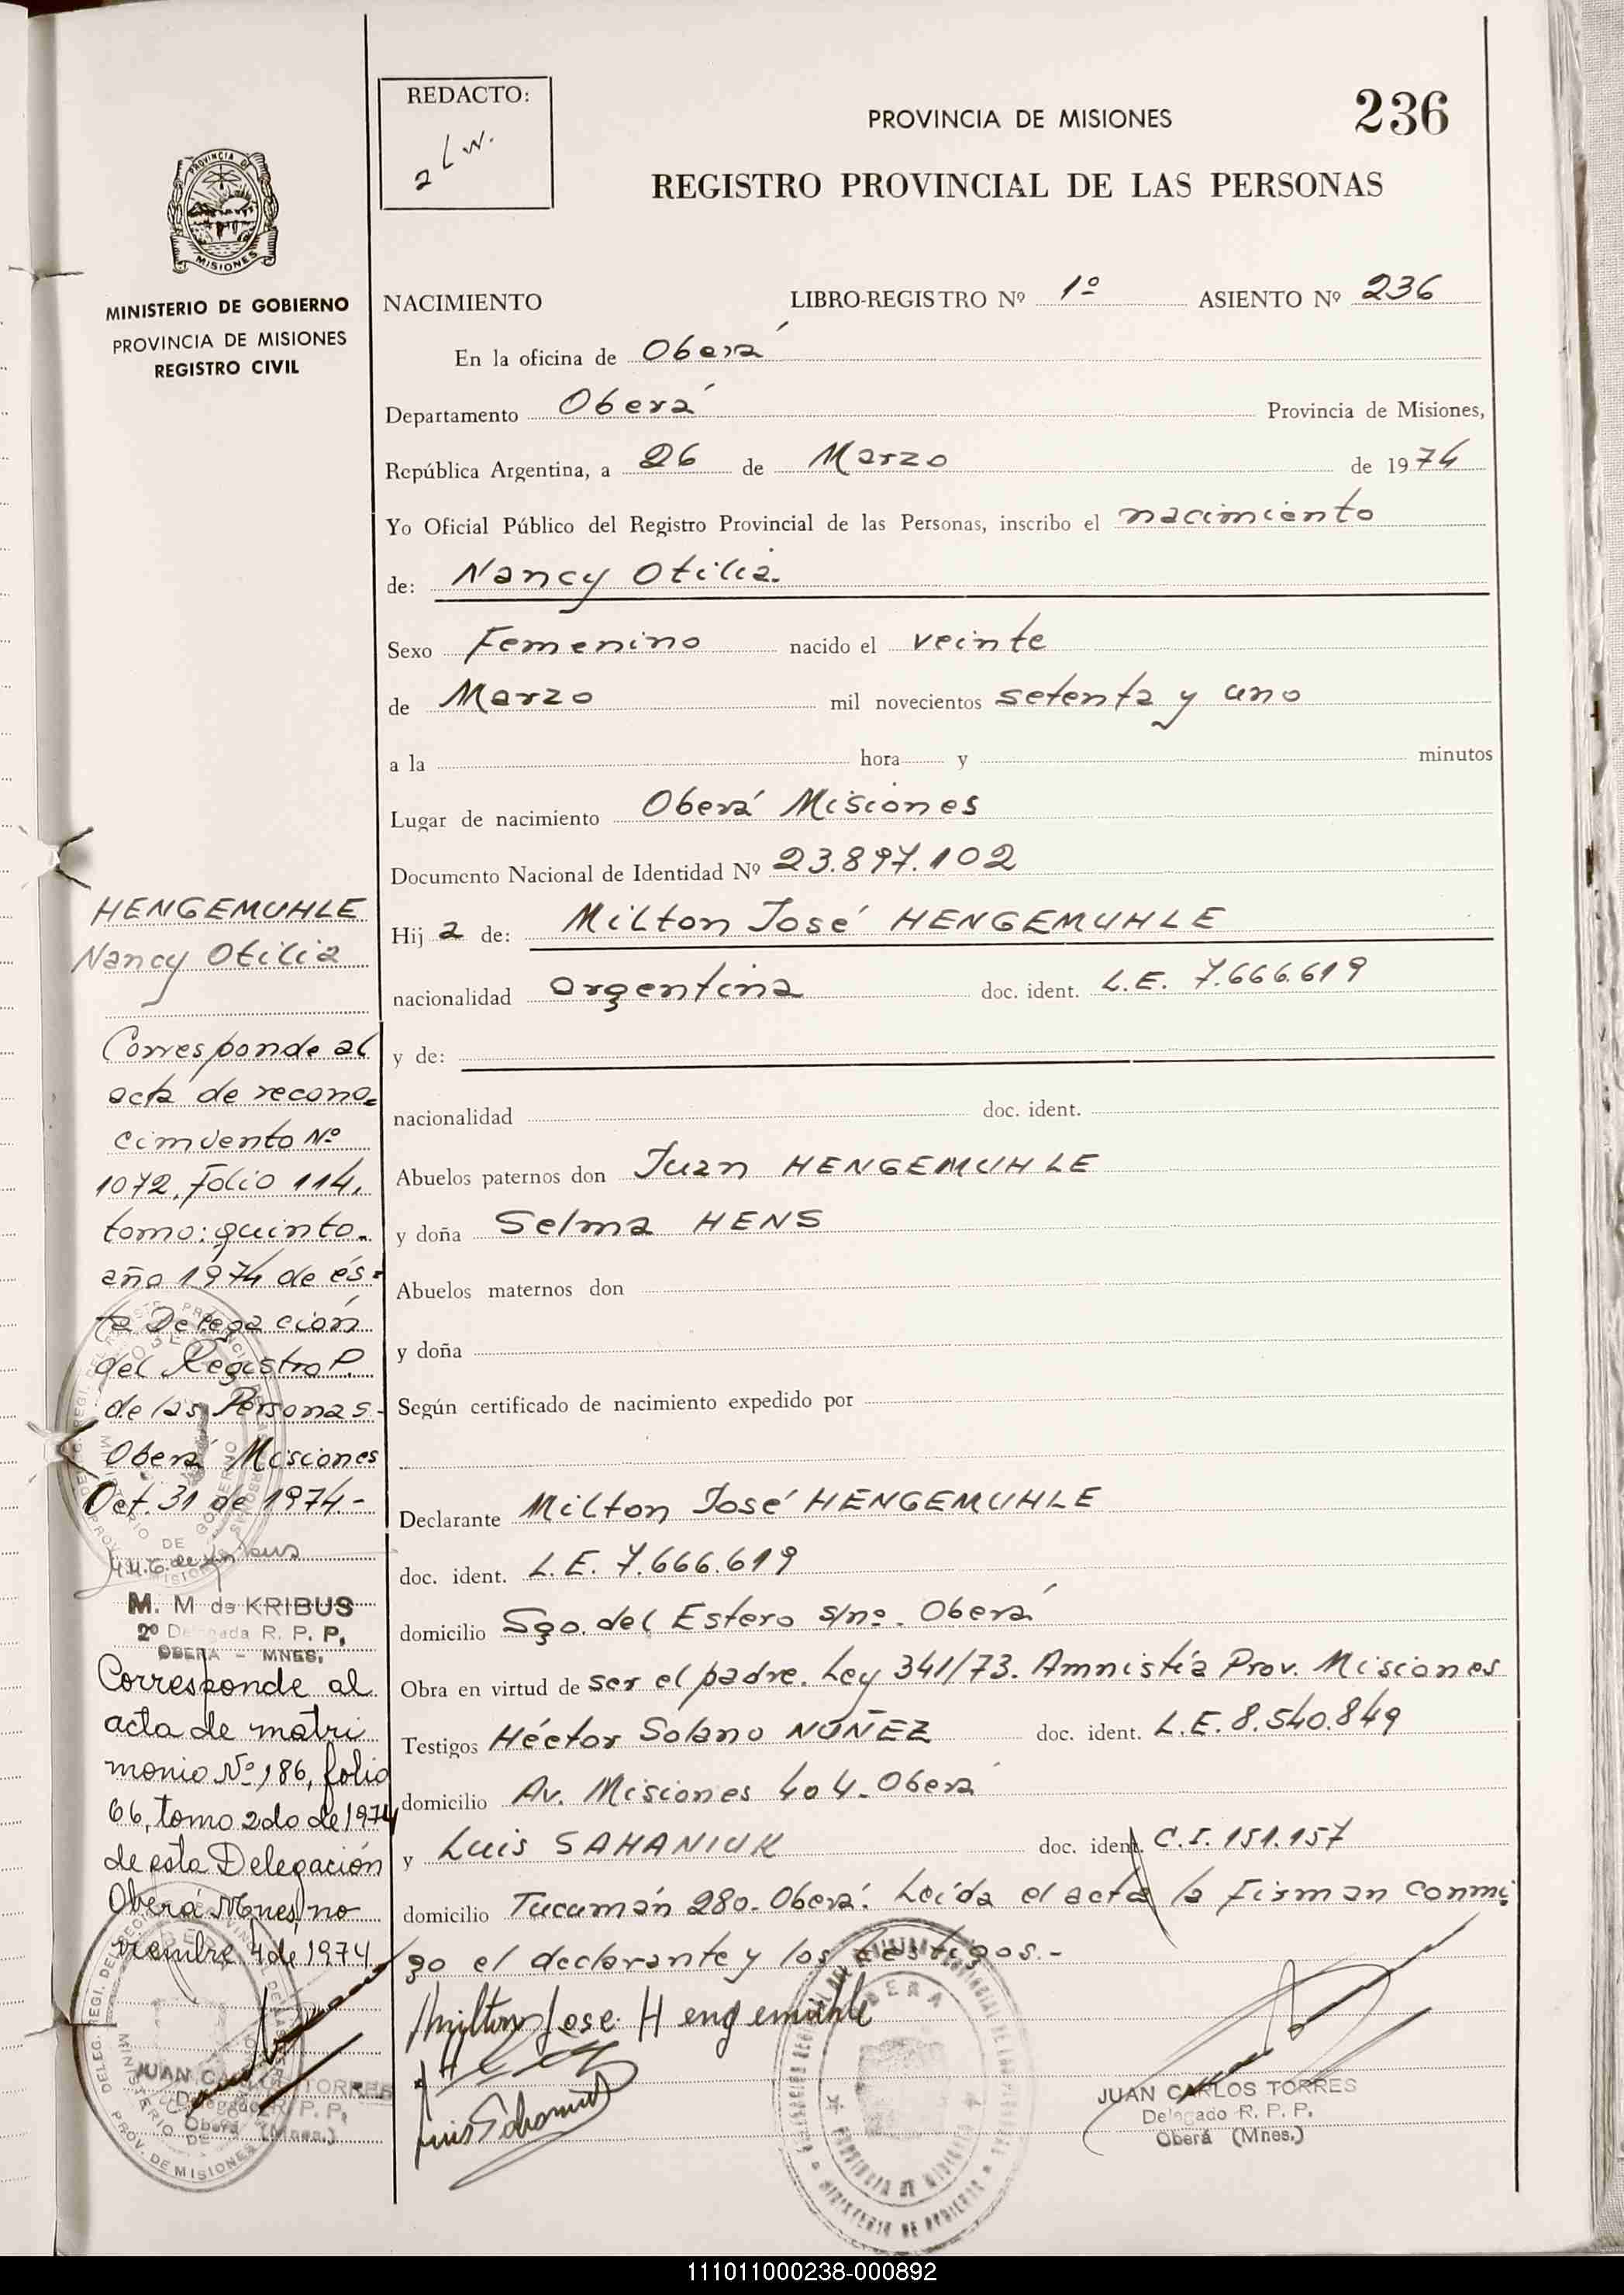 REDACTO:
L W.
PROVINCIA DE MISIONES
236
REGISTRO PROVINCIAL DE LAS PERSONAS
PROVINCIA DE
MISIONES
MINISTERIO DE GOBIERNO
PROVINCIA DE MISIONES
REGISTRO CIVIL
NACIMIENTO LIBRO-REGISTRO Nº 1º ASIENTO Nº 236
En la oficina de Oberá
Departamento Oberá Provincia de Misiones,
República Argentina, a 26 de Marzo de 1974
Yo Oficial Público del Registro Provincial de las Personas, inscribo el nacimiento
de: Nancy Otilia.
Sexo Femenino nacido el veinte
de Marzo mil novecientos setenta y uno
a la hora y minutos
Lugar de nacimiento Oberá Misiones
Documento Nacional de Identidad Nº 23.897.102
Hij a de: Milton José HENGEMUHLE
nacionalidad argentina doc. ident. L.E. 7.666.619
y de:
nacionalidad doc. ident.
Abuelos paternos don Juan HENGEMUHLE
y doña Selma HENS
Abuelos maternos don
y doña
Según certificado de nacimiento expedido por
Declarante Milton José HENGEMUHLE
doc. ident. L.E. 7.666.619
domicilio Sgo. del Estero s/nº. Oberá
Obra en virtud de ser el padre. Ley 341/73. Amnistía Prov. Misiones
Testigos Héctor Solano NUÑEZ doc. ident. L.E. 8.540.849
domicilio Av. Misiones 404. Oberá
y Luis SAHANIUK doc. ident. C.I. 151.157
domicilio Tucumán 280. Oberá. Leída el acta la firman conmi
go el declarante y los testigos.-
Milton Jose Hengemuhle
Luis Sahaniuk
JUAN CARLOS TORRES
Delegado R. P. P.
Oberá (Mnes.)
HENGEMUHLE
Nancy Otilia
Corresponde al
acta de recono=
cimiento Nº
1072, Folio 114,
tomo: quinto.
año 1974 de és=
ta Delegación
del Registro P.
de las Personas-
Oberá Misiones
Oct. 31 de 1974.-
M. M de KRIBUS
2º Delegada R. P. P,
OBERA - MNES.
Corresponde al
acta de matri
monio Nº 186, folio
66, tomo 2do de 1974
de esta Delegación
Oberá Mnes, no
viembre 4 de 1974
JUAN CARLOS TORRES
Delegado R. P. P.
Oberá (Mnes.)
PROV. DE MISIONES
111011000238-000892